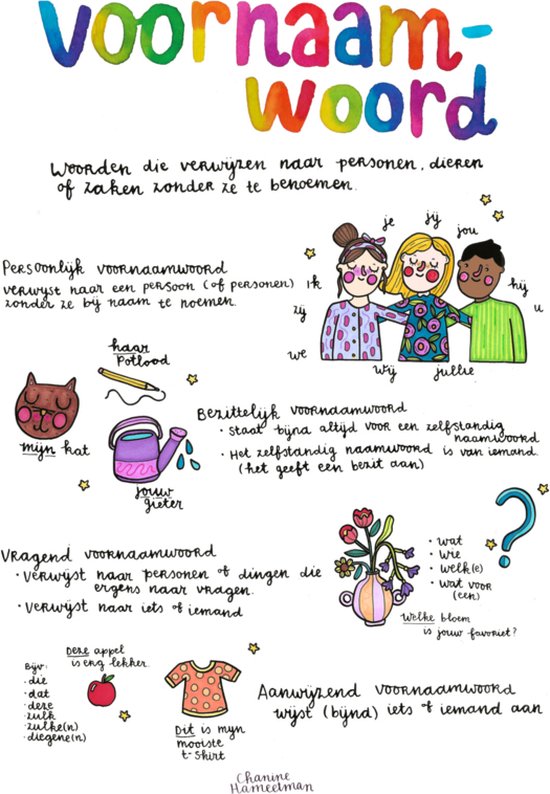 voornaam-
woord
Woorden die verwijzen naar personen, dieren
of zaken zonder ze te benoemen.
Persoonlijk voornaamwoord
verwijst naar een persoon (of personen)
zonder ze bij naam te noemen.
je
jij
jou
ik
hij
zij
u
we
wij
jullie
haar
potlood
mijn kat
jouw
gieter
Bezittelijk voornaamwoord
• Staat bijna altijd voor een zelfstandig
naamwoord
• Het zelfstandig naamwoord is van iemand.
(het geeft een bezit aan)
Vragend voornaamwoord
• Verwijst naar personen of dingen die
ergens naar vragen.
• Verwijst naar iets of iemand
• wat
• wie
• welk(e)
• wat voor
(een)
Welke bloem
is jouw favoriet?
Bijv:
• die
• dat
• deze
• zulk
• zulke(n)
• diegene(n)
Deze appel
is erg lekker.
Dit is mijn
mooiste
t-shirt
Aanwijzend voornaamwoord
wijst (bijna) iets of iemand aan
Chanine
Hameetman